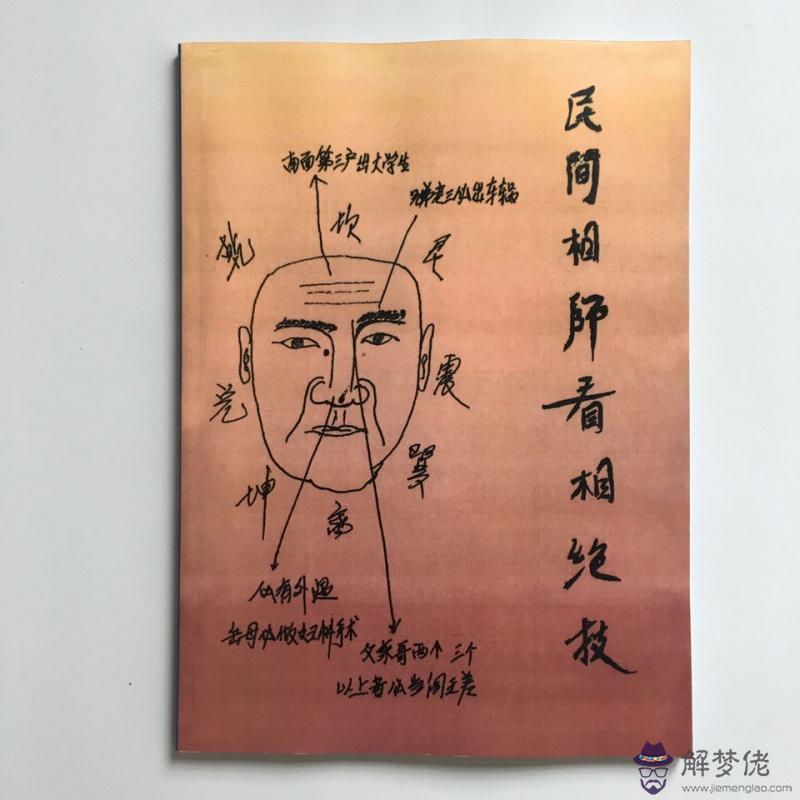 民間相師看相绝技
南面第三户出大学生
兄弟老三必出车祸
坎
乾
艮
兑
震
坤
巽
离
必有外遇
岳母必做妇科手术
父亲哥两个 三个
以上者必当阎王差
解梦佬
www.jiemenglao.com